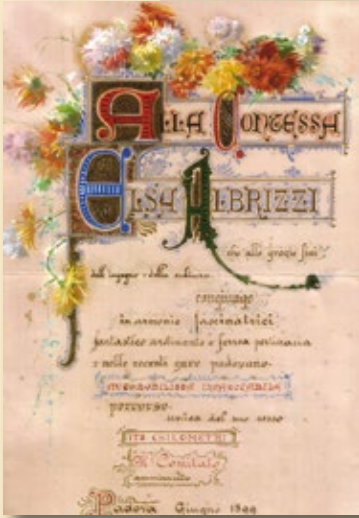 ALLA CONTESSA
ELSA ALBRIZZI
che alle grazie
dell'ingegno e della coltura
coniugo
in armonie fascinatrici
fantastico ardimento e forza pertinacia
e nelle recenti gare padovane
percorse
unica del suo sesso
CHILOMETRI
Il Comitato
ammirato
Padova Giugno